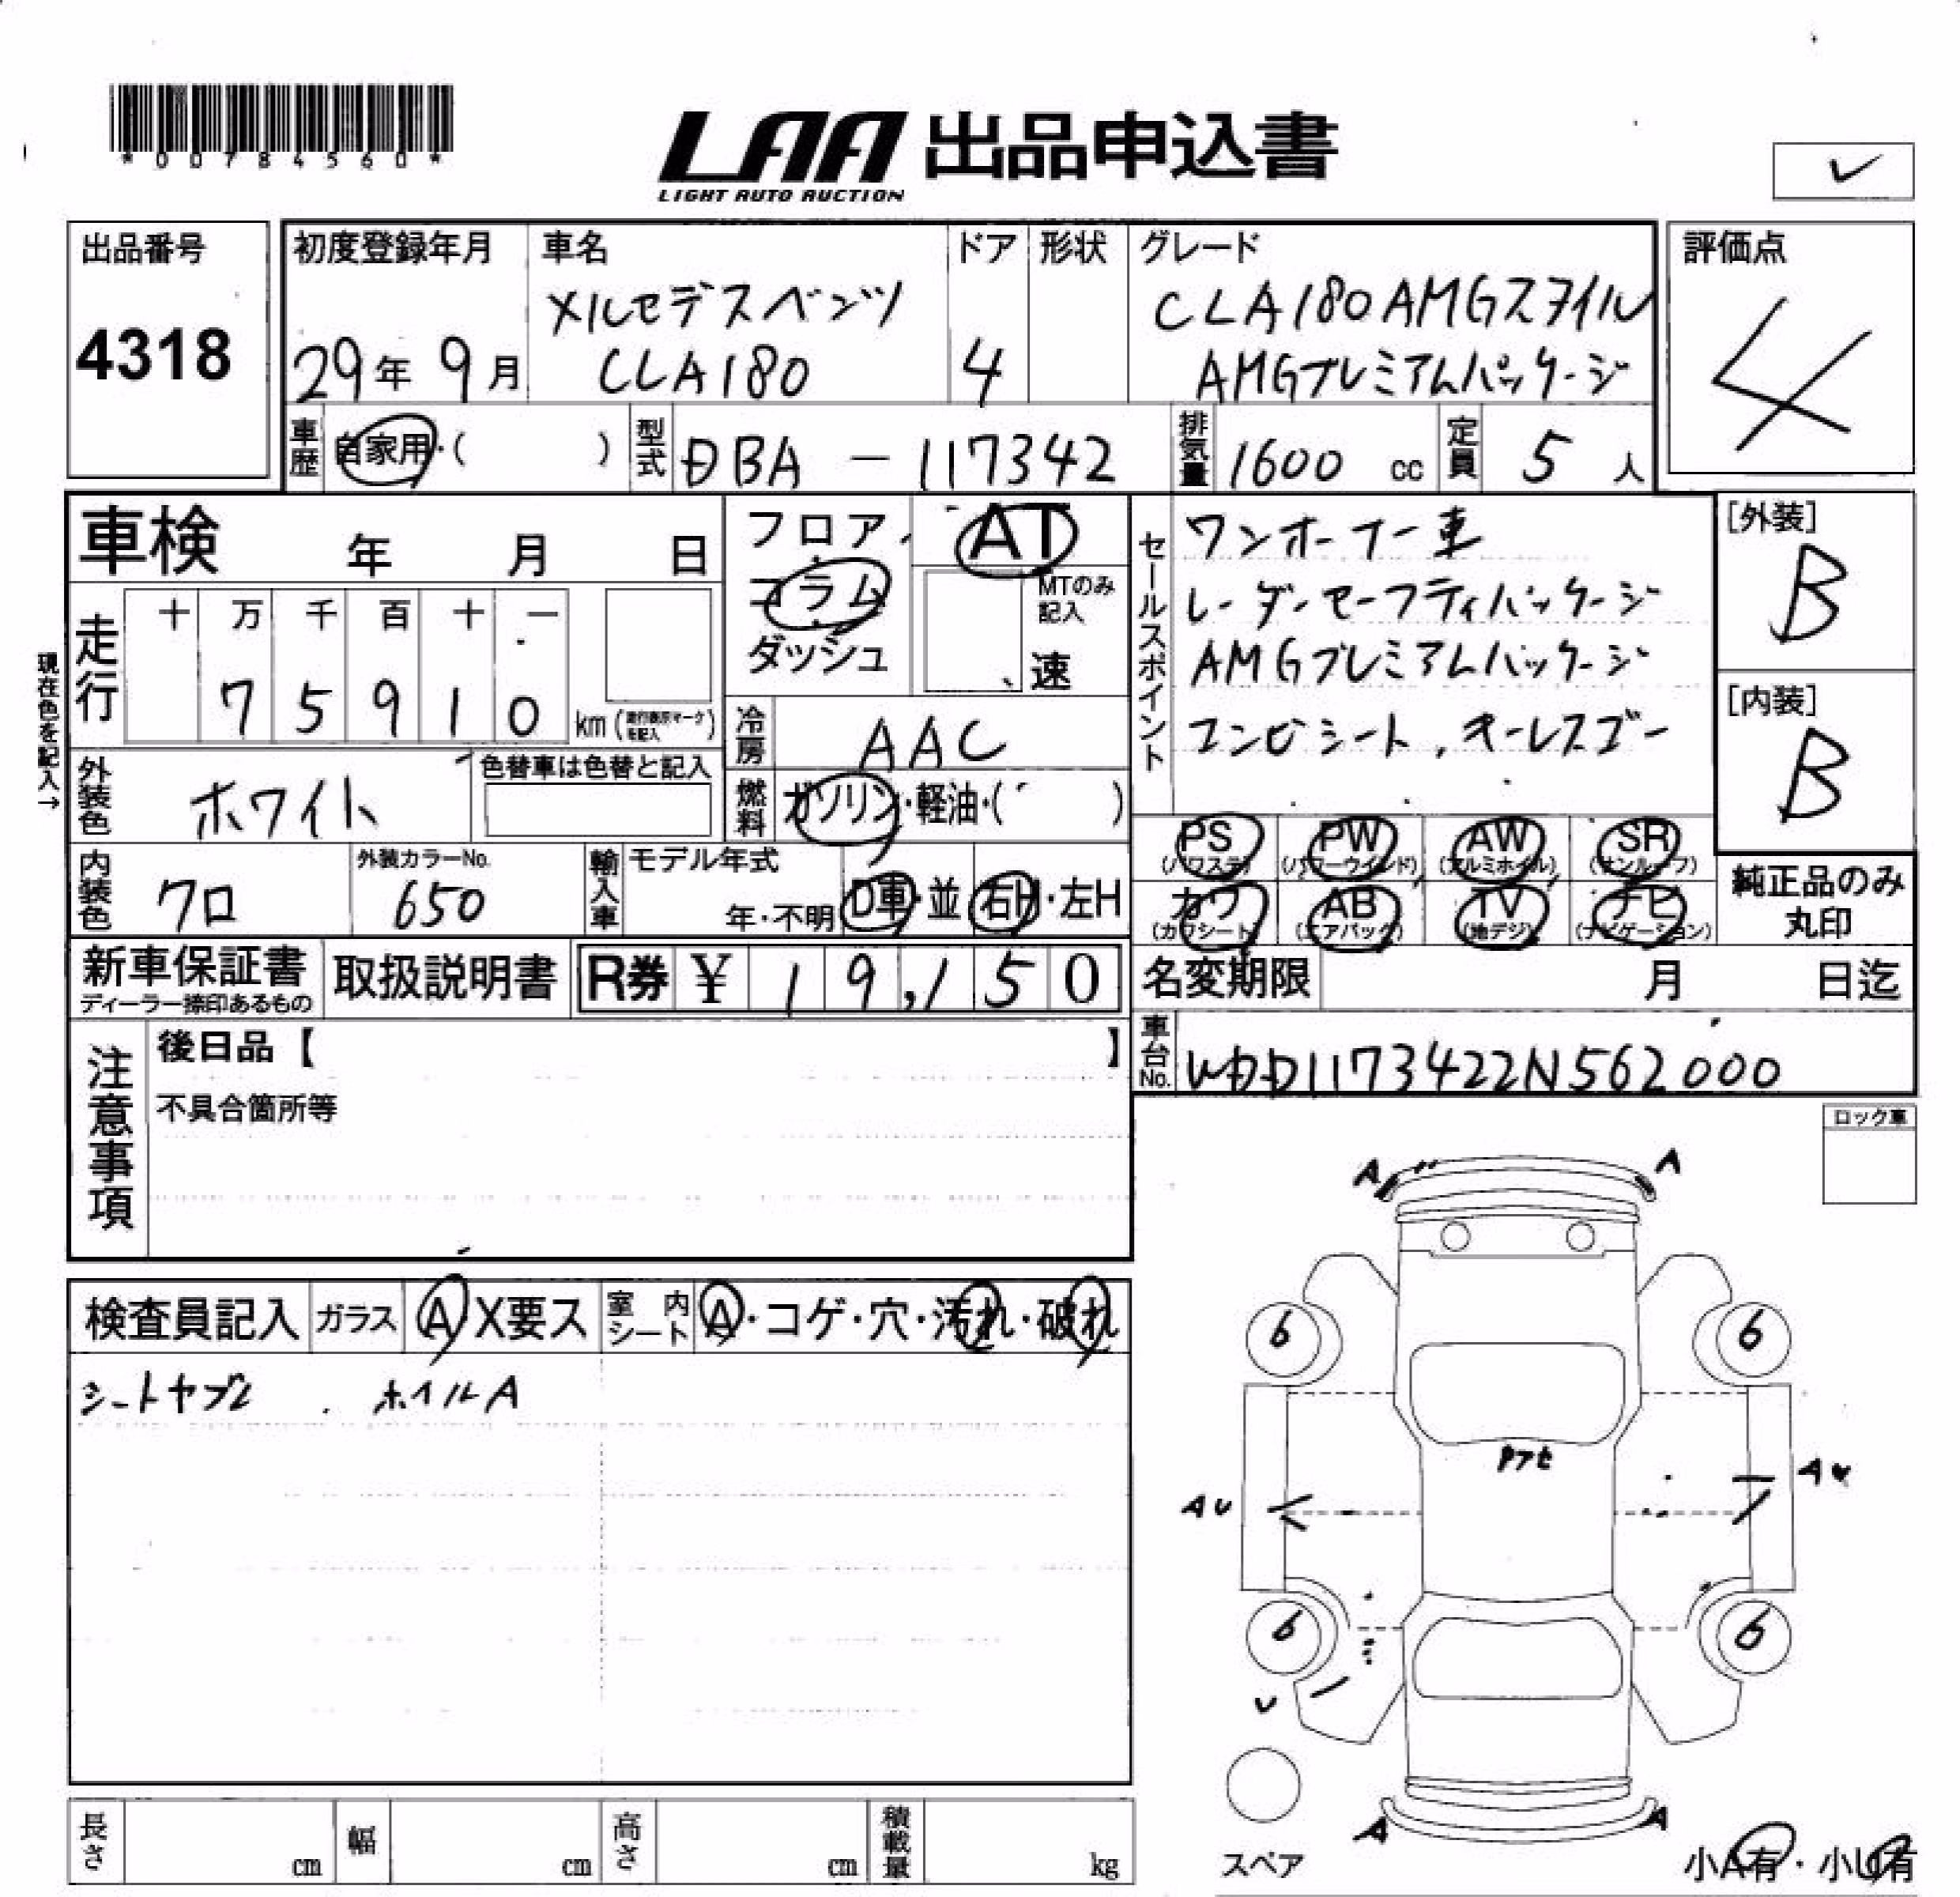 *00784560*
LAA 出品申込書
LIGHT AUTO AUCTION
出品番号
4318
初度登録年月
29年 9月
車名
メルセデスベンツ
CLA180
ドア
4
形状
グレード
CLA180AMGスタイル
AMGプレミアムパッケージ
評価点
4
車歴 自家用・( )
型式 DBA - 117342
排気量 1600 cc
定員 5 人
車検 年 月 日
現在色を記入→
走行
十 万 千 百 十 一
7 5 9 1 0 km
(走行表示マークを記入)
フロア
コラム
ダッシュ
AT
MTのみ記入
速
冷房 AAC
燃料 ガソリン・軽油・( )
セールスポイント
ワンオーナー車
レーダーセーフティパッケージ
AMGプレミアムパッケージ
コンビシート、キーレスゴー
[外装]
B
[内装]
B
外装色 ホワイト
色替車は色替と記入
内装色 クロ
外装カラーNo.
650
輸入車
モデル年式
年・不明
D車・並
右H・左H
PS (パワステ)
PW (パワーウインド)
AW (アルミホイル)
SR (サンルーフ)
カワ (カワシート)
AB (エアバック)
TV (地デジ)
ナビ (ナビゲーション)
純正品のみ
丸印
新車保証書
ディーラー捺印あるもの
取扱説明書
R券 ¥ 19,150
名変期限 月 日迄
車台No. WDD1173422N562000
注意事項
後日品【 】
不具合箇所等
ロック車
検査員記入
ガラス A X要ス
室内シート A・コゲ・穴・汚れ・破れ
シートヤブレ . ホイルA
A A
6 6
AU AU
6 6
U
A A
スペア
小A有・小U有
長さ cm
幅 cm
高さ cm
積載量 kg